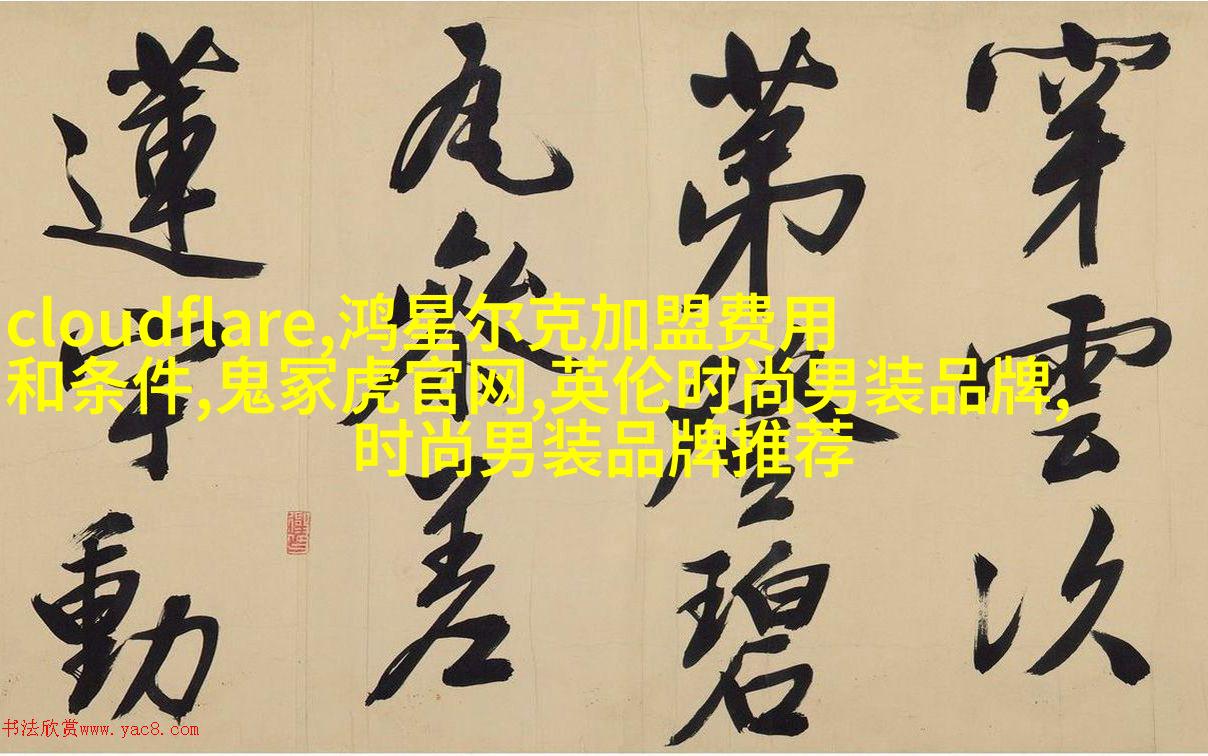 穿雲次
第磴碧
瓦參差
蓮宇動
cloudflare,鸿星尔克加盟费用
和条件,鬼冢虎官网,英伦时尚男装品牌,
时尚男装品牌推荐
书法欣赏www.yac8.com